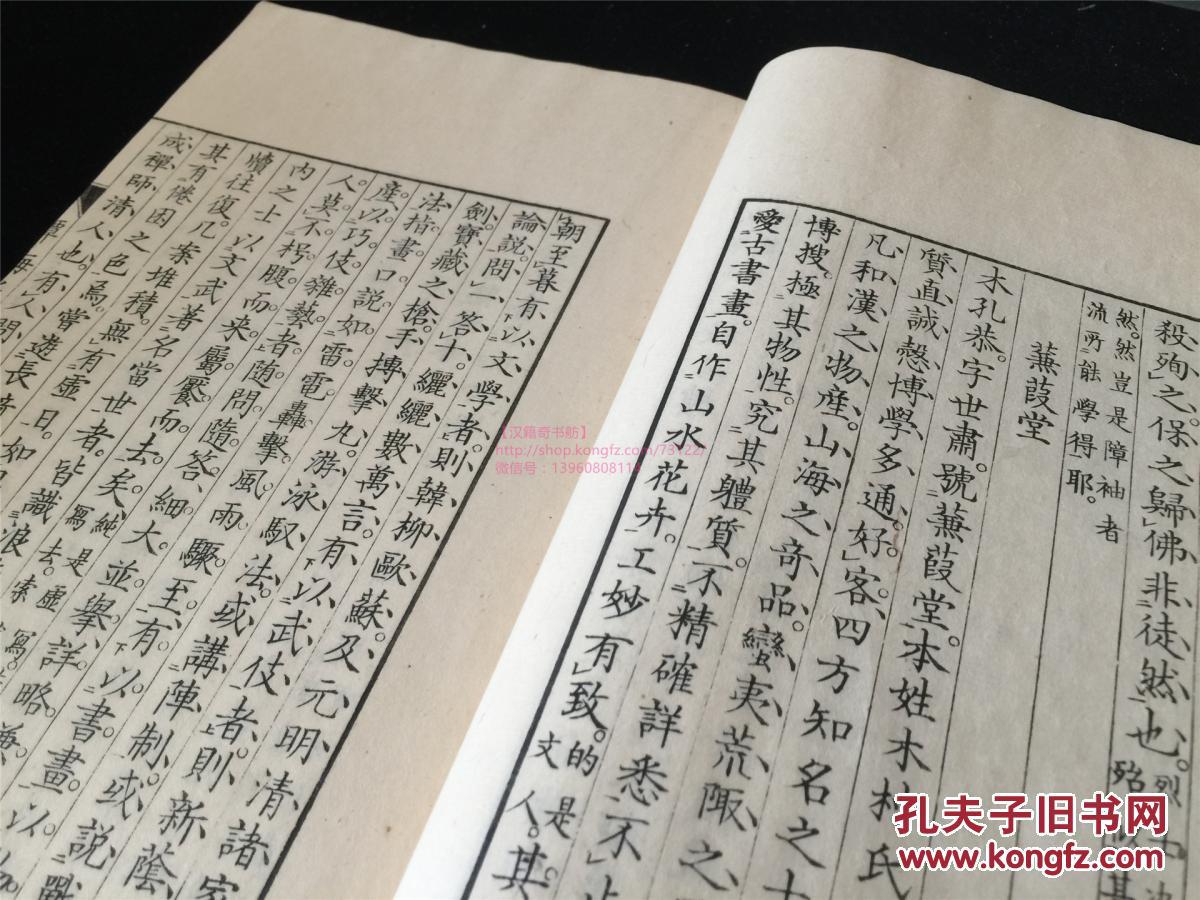 殺殉之保之歸佛非徒然也
然然豈是障袖者
流所能學得耶
蒹葭堂
木孔恭字世肅號蒹葭堂本姓木村氏
質直誠慤博學多通好客四方知名之士
凡和漢之物產山海之奇品蠻夷荒陬之
博搜極其物性究其體質不精確詳悉不止
愛古書畫自作山水花卉工妙有致的是文人其
朝至暮有以文學者則韓柳歐蘇及元明清諸家
論說問一答十纚纚數萬言有以武伎者則新蔭
劍寶藏之槍手搏擊丸游泳馭法或講陣制或說戰
法指畫口說如雷電轟擊風雨驟至有以書畫以
產以巧伎雜藝者隨問隨答細大並舉詳略
人莫不枵腹而来屬饜而去矣純是寫虛
內之士以文武著名當世者皆識
牘往復几案堆積無有虛日
其有倦困之色焉嘗遊長
成禪師清人也有人問
【汉籍奇书舫】
http://shop.kongfz.com/73122/
微信号：13960808114
孔夫子旧书网
www.kongfz.com